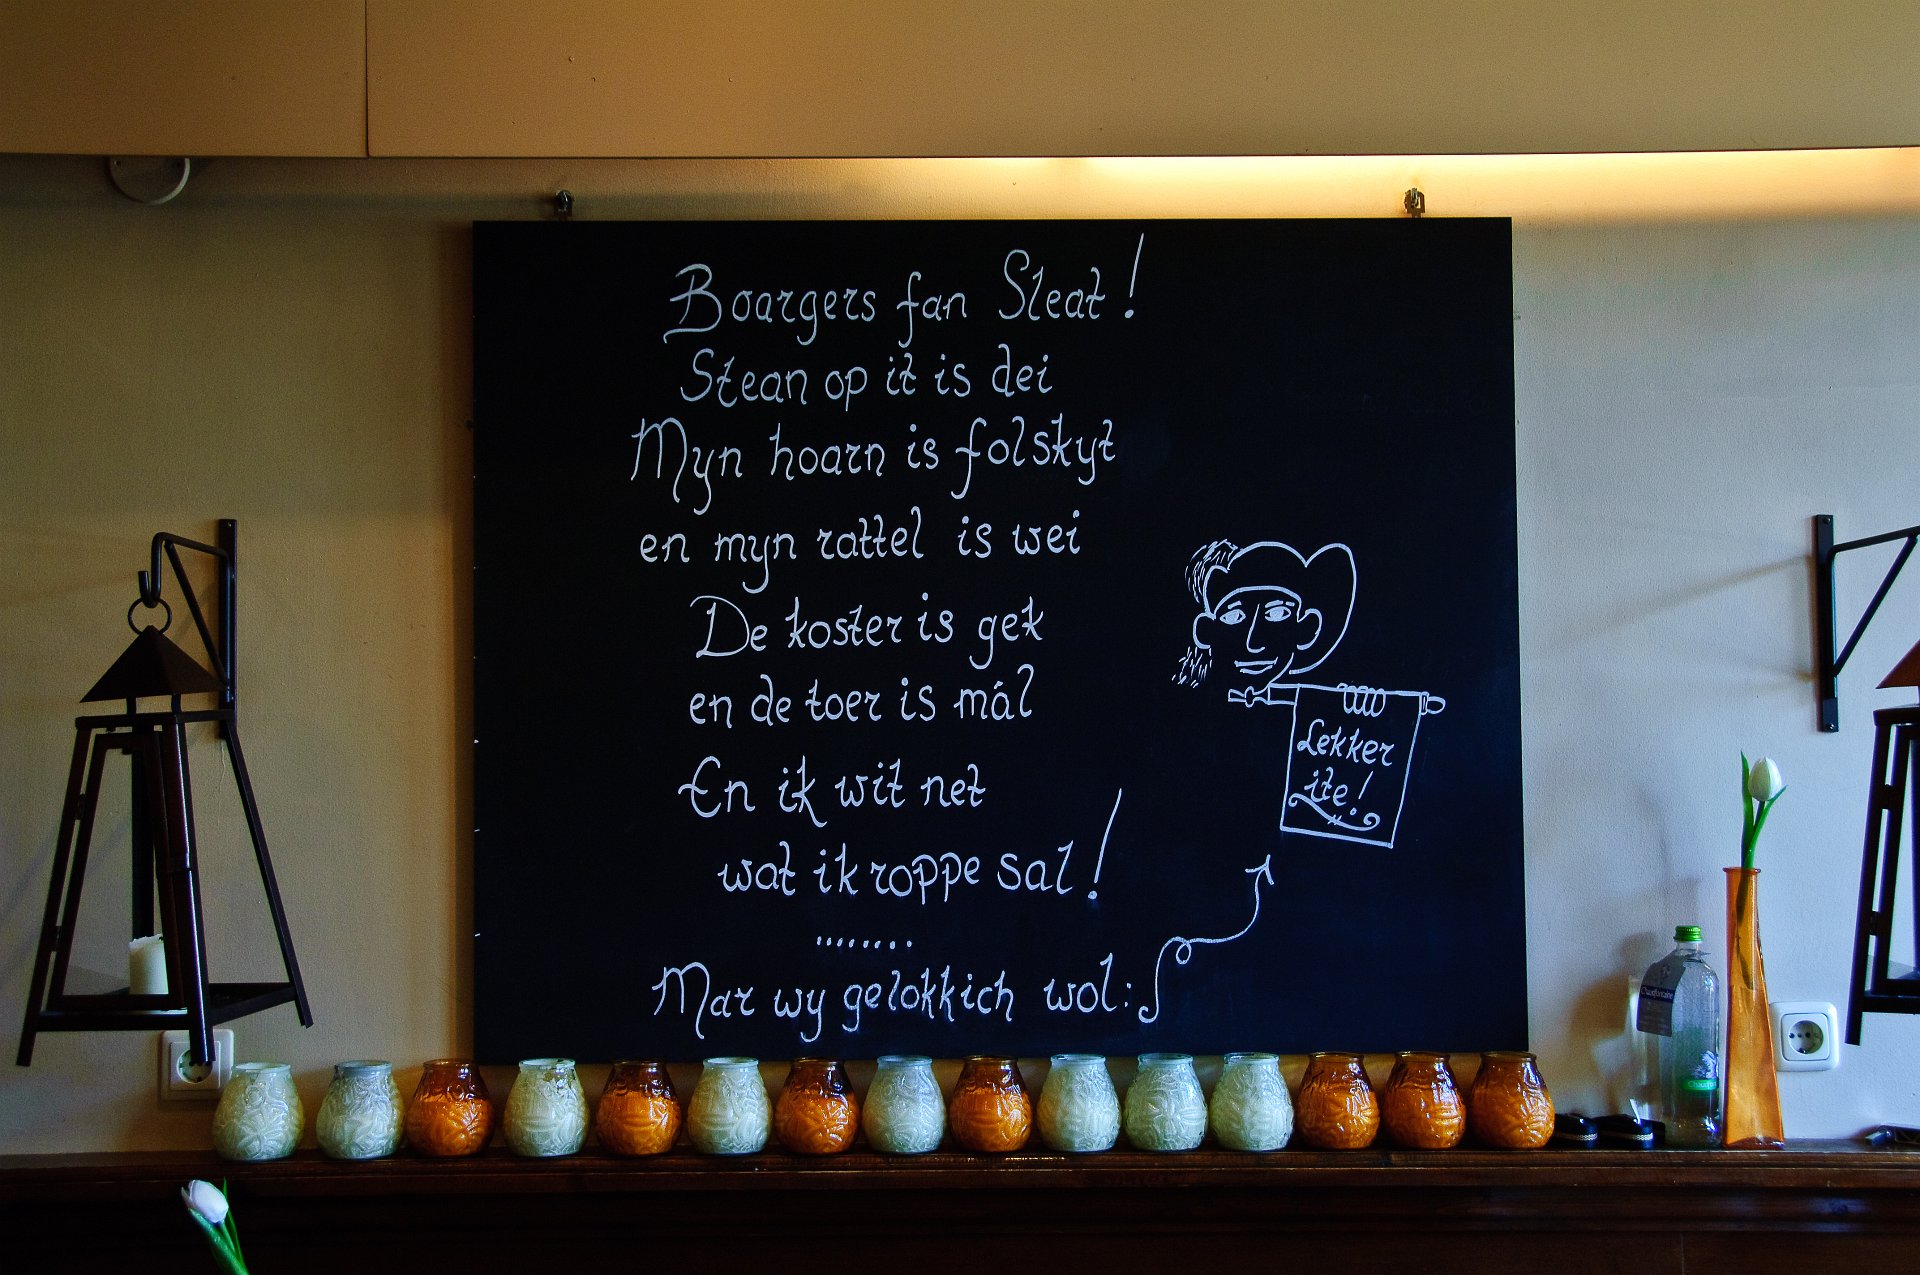 Boargers fan Sleat!
Stean op it is dei
Myn hoarn is folskyt
en myn rattel is wei
De koster is gek
en de toer is mál
En ik wit net
wat ik roppe sal!
........
Mar wy gelokkich wol:
Lekker
ite!
Chaudfontaine